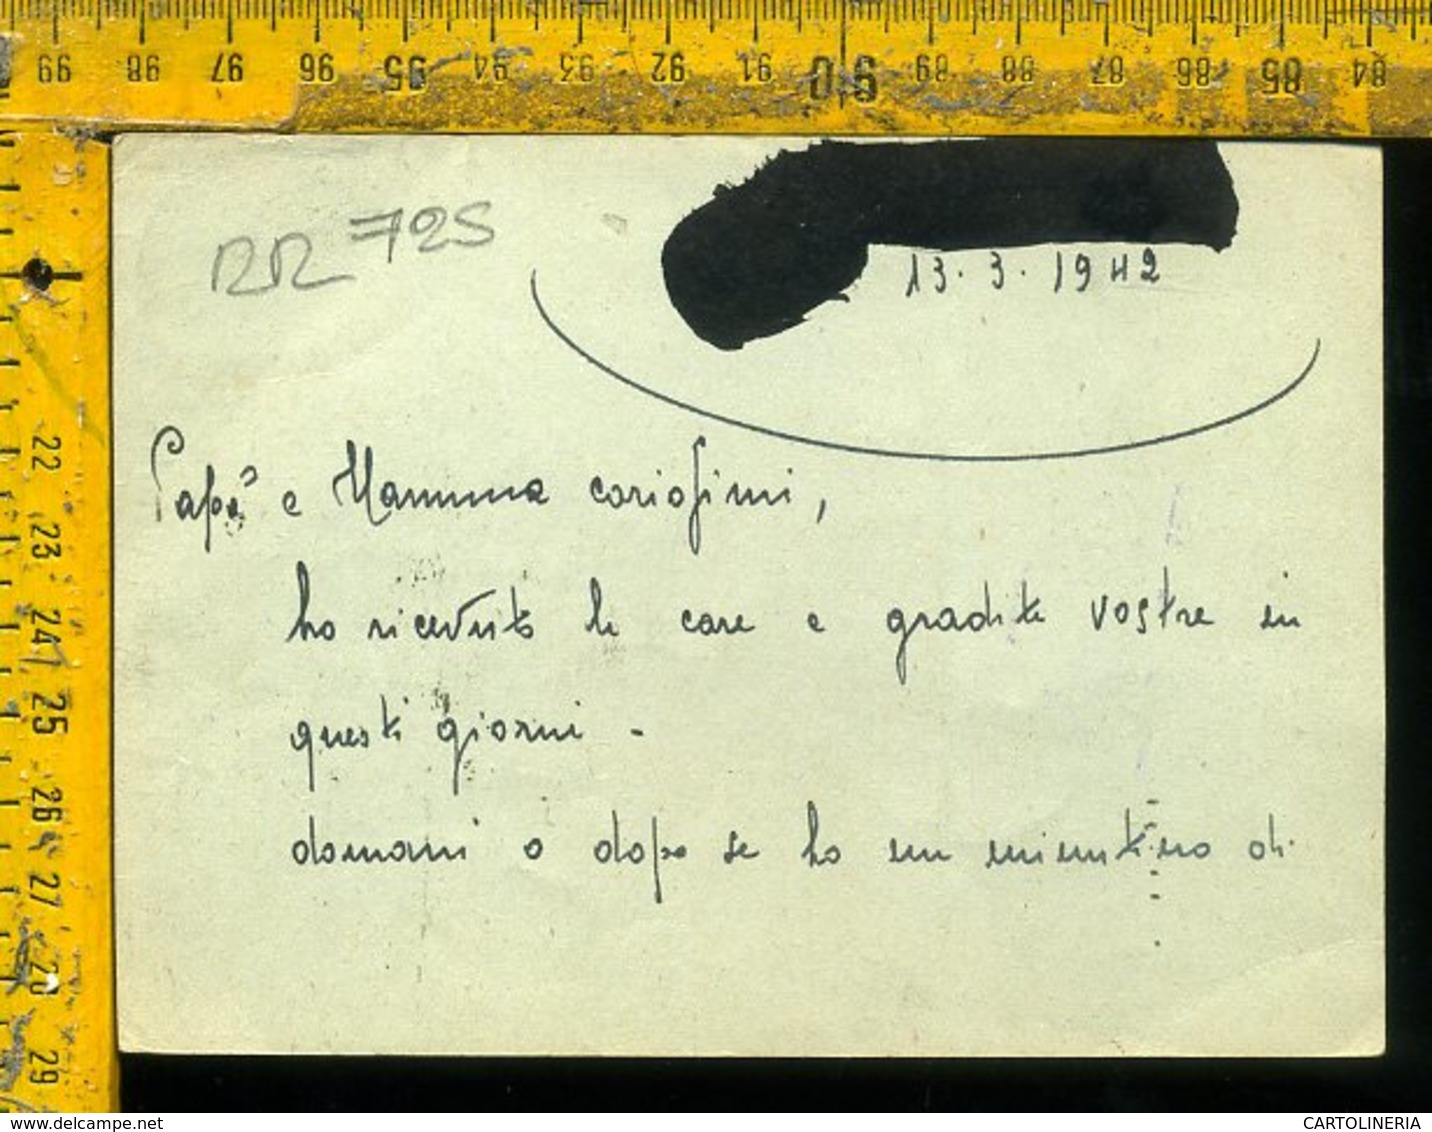 99 98 97 96 95 94 93 92 91 90 89 88 87 86 85 84
RR 725
13.3.1942
Papà e Mamma carissimi,
ho ricevuto le care e gradite vostre in
questi giorni -
domani o dopo se ho un minutino di
22
23
24
25
26
27
28
29
www.delcampe.net
CARTOLINERIA